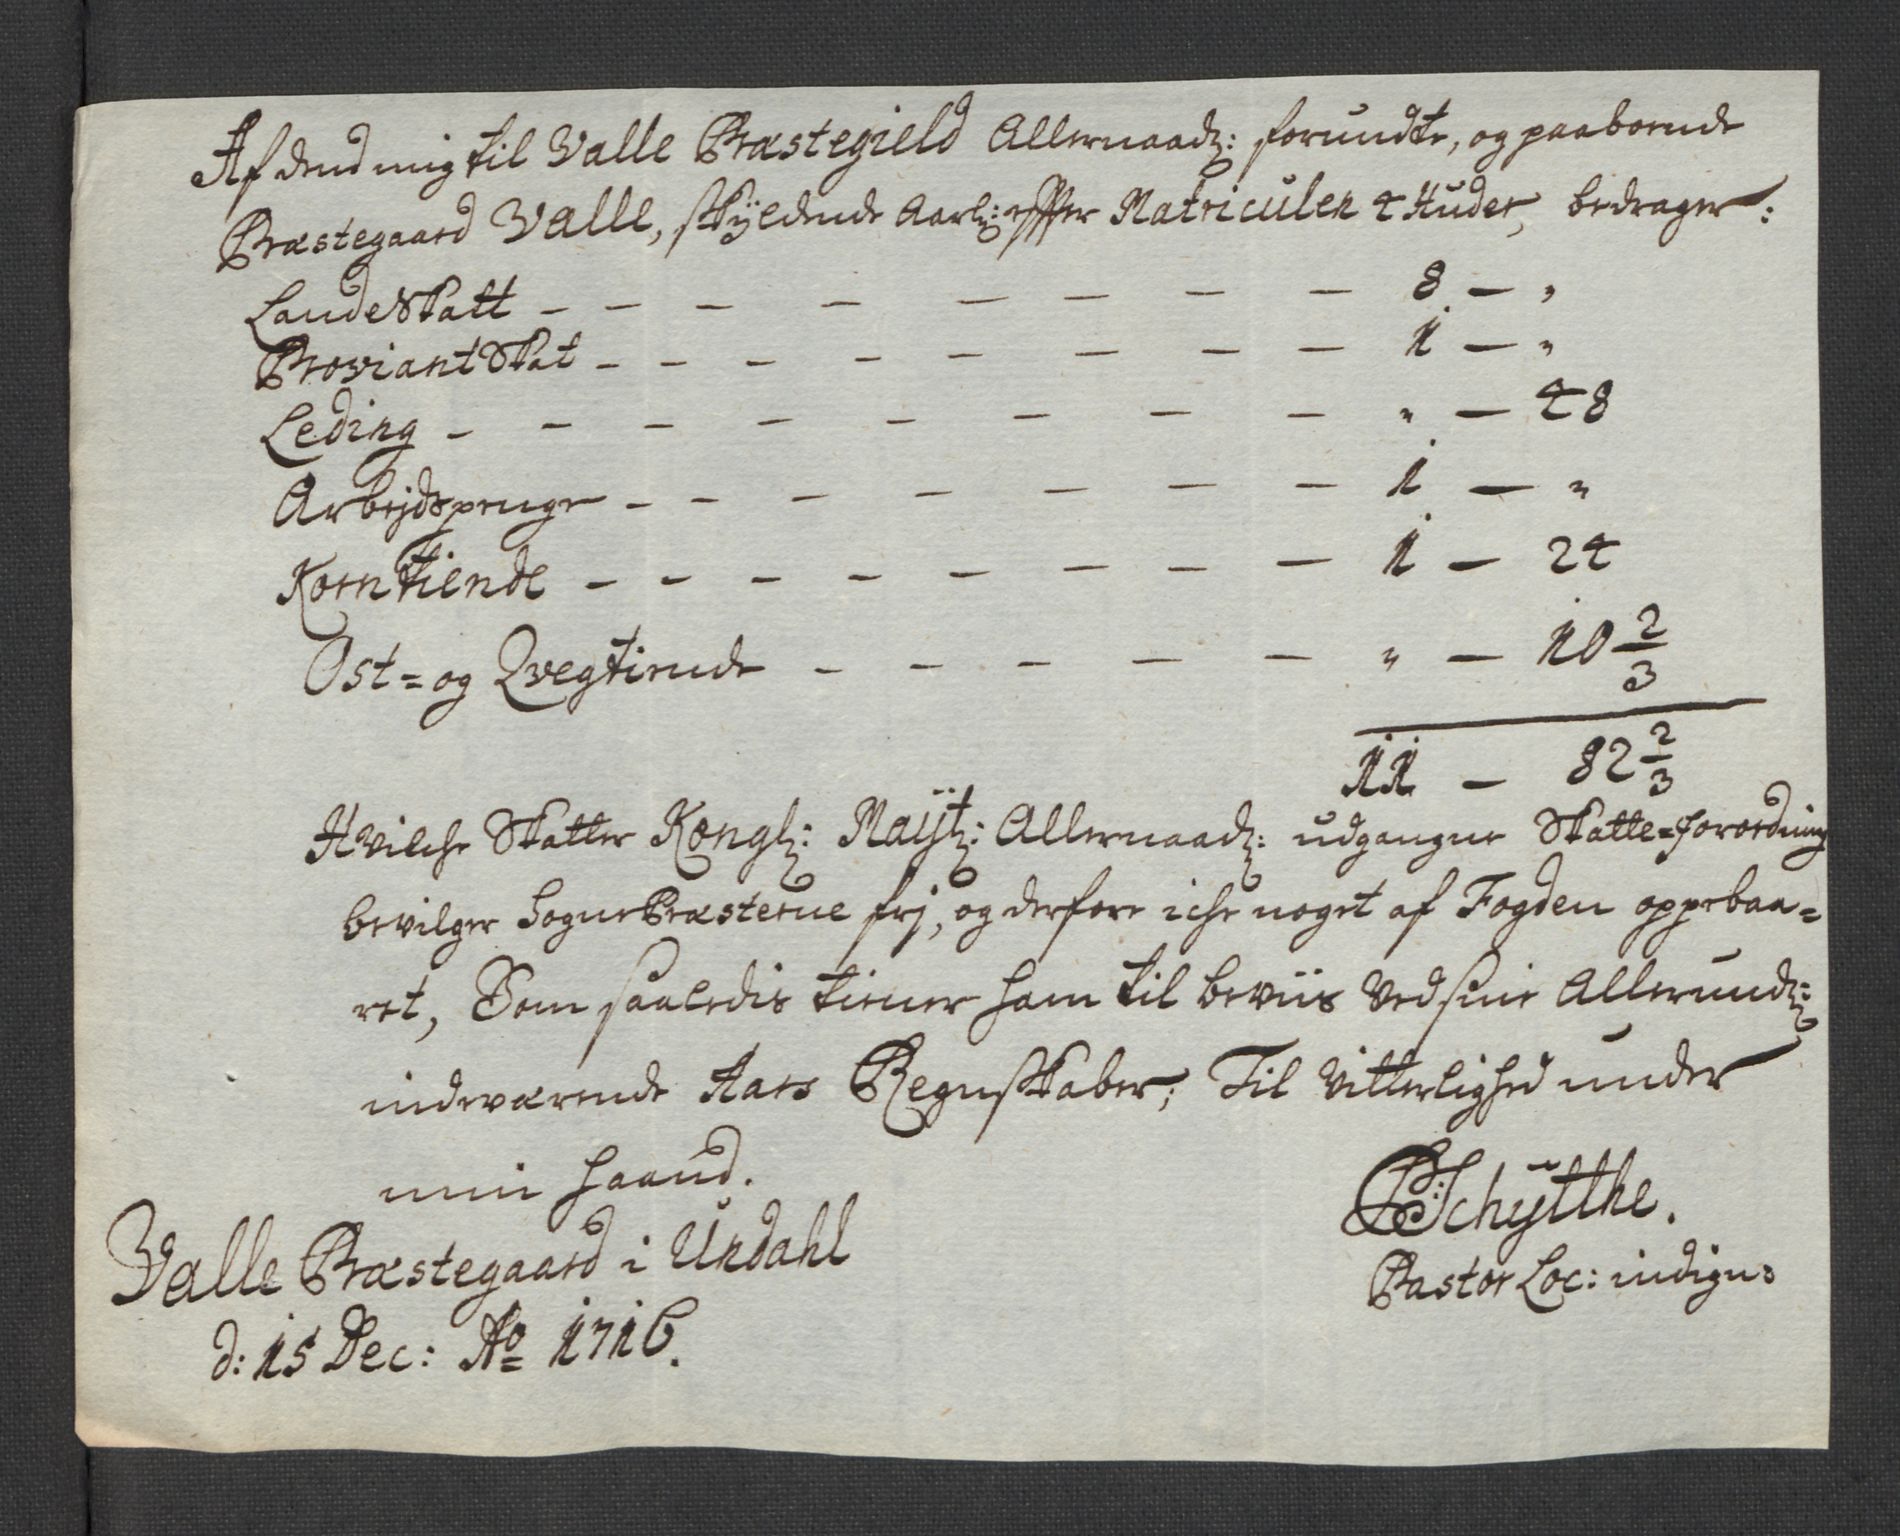 Af dend mig til Valle Præstegield Allernaadl: forundte, og paaboende
Præstegaard Valle, skÿldende Aarl: effter Matriculen 4 Huder, bedrager:
LandeSkatt – – – – – – – – 8 – „
ProviantSkat – – – – – – – – 1 – „
Leding – – – – – – – – „ – 48
Arbejdspenge – – – – – – – 1 – „
Korntiende – – – – – – – – 1 – 24
Ost- og Qvegtiende – – – – – „ – 10 2/3
11 – 82 2/3
Hvilche Skatter Kongl: Maÿt: Allernaadl: udgangne Skatte-forordning
bevilger SognePræsterne frj, og derfore iche noget af Fogden oppebaa-
ret, Som saaledis tiener ham til beviis ved sine Allerundl:
indeværende Aars Regnskaber; Til Vitterlighed under
min haand.
Valle Præstegaard i Undahl
d: 15 Dec: Ao 1716.
Schÿtthe.
Pastor Loc: indignus